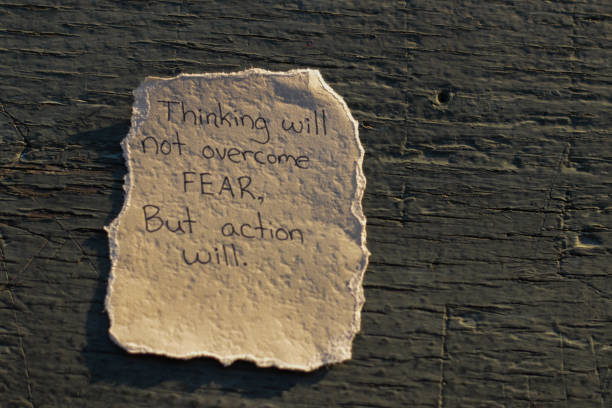 Thinking will
not overcome
FEAR,
But action
will.